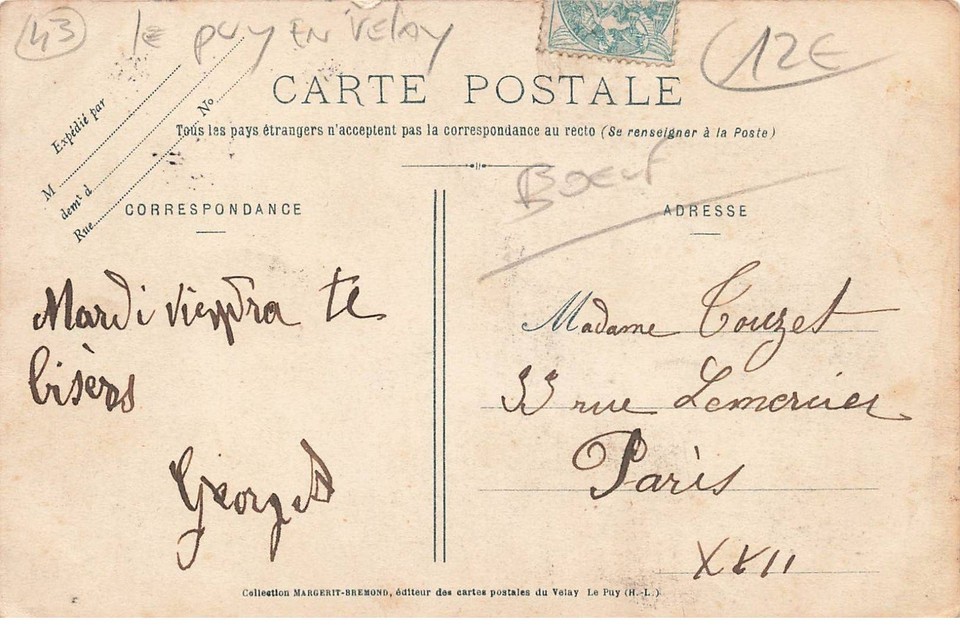 43 le puy EN Velay 12€
CARTE POSTALE
Tous les pays étrangers n'acceptent pas la correspondance au recto (Se renseigner à la Poste)
Expédié par
M
demt d
Rue No
BOEUF
CORRESPONDANCE
Mardi viendra te
bisers
Georges
ADRESSE
Madame Touzet
33 rue Lemercier
Paris
XVII
Collection MARGERIT-BREMOND, éditeur des cartes postales du Velay Le Puy (H.-L.)